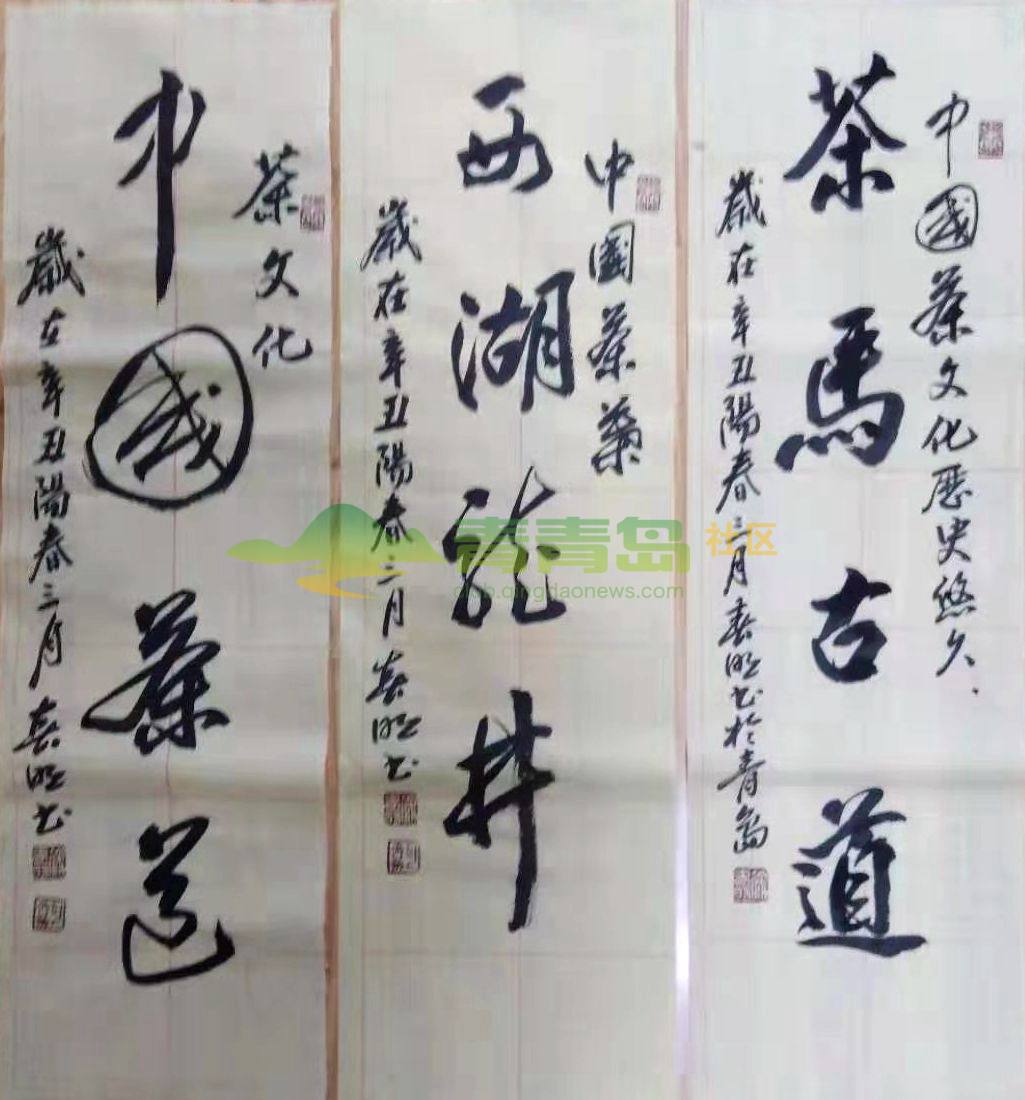 中國茶文化歷史悠久、
茶馬古道
歲在辛丑陽春三月书於青島
中國茶葉
西湖龍井
歲在辛丑陽春三月书
茶文化
中國茶道
歲在辛丑陽春三月书
青青岛社区
club.qingdaonews.com